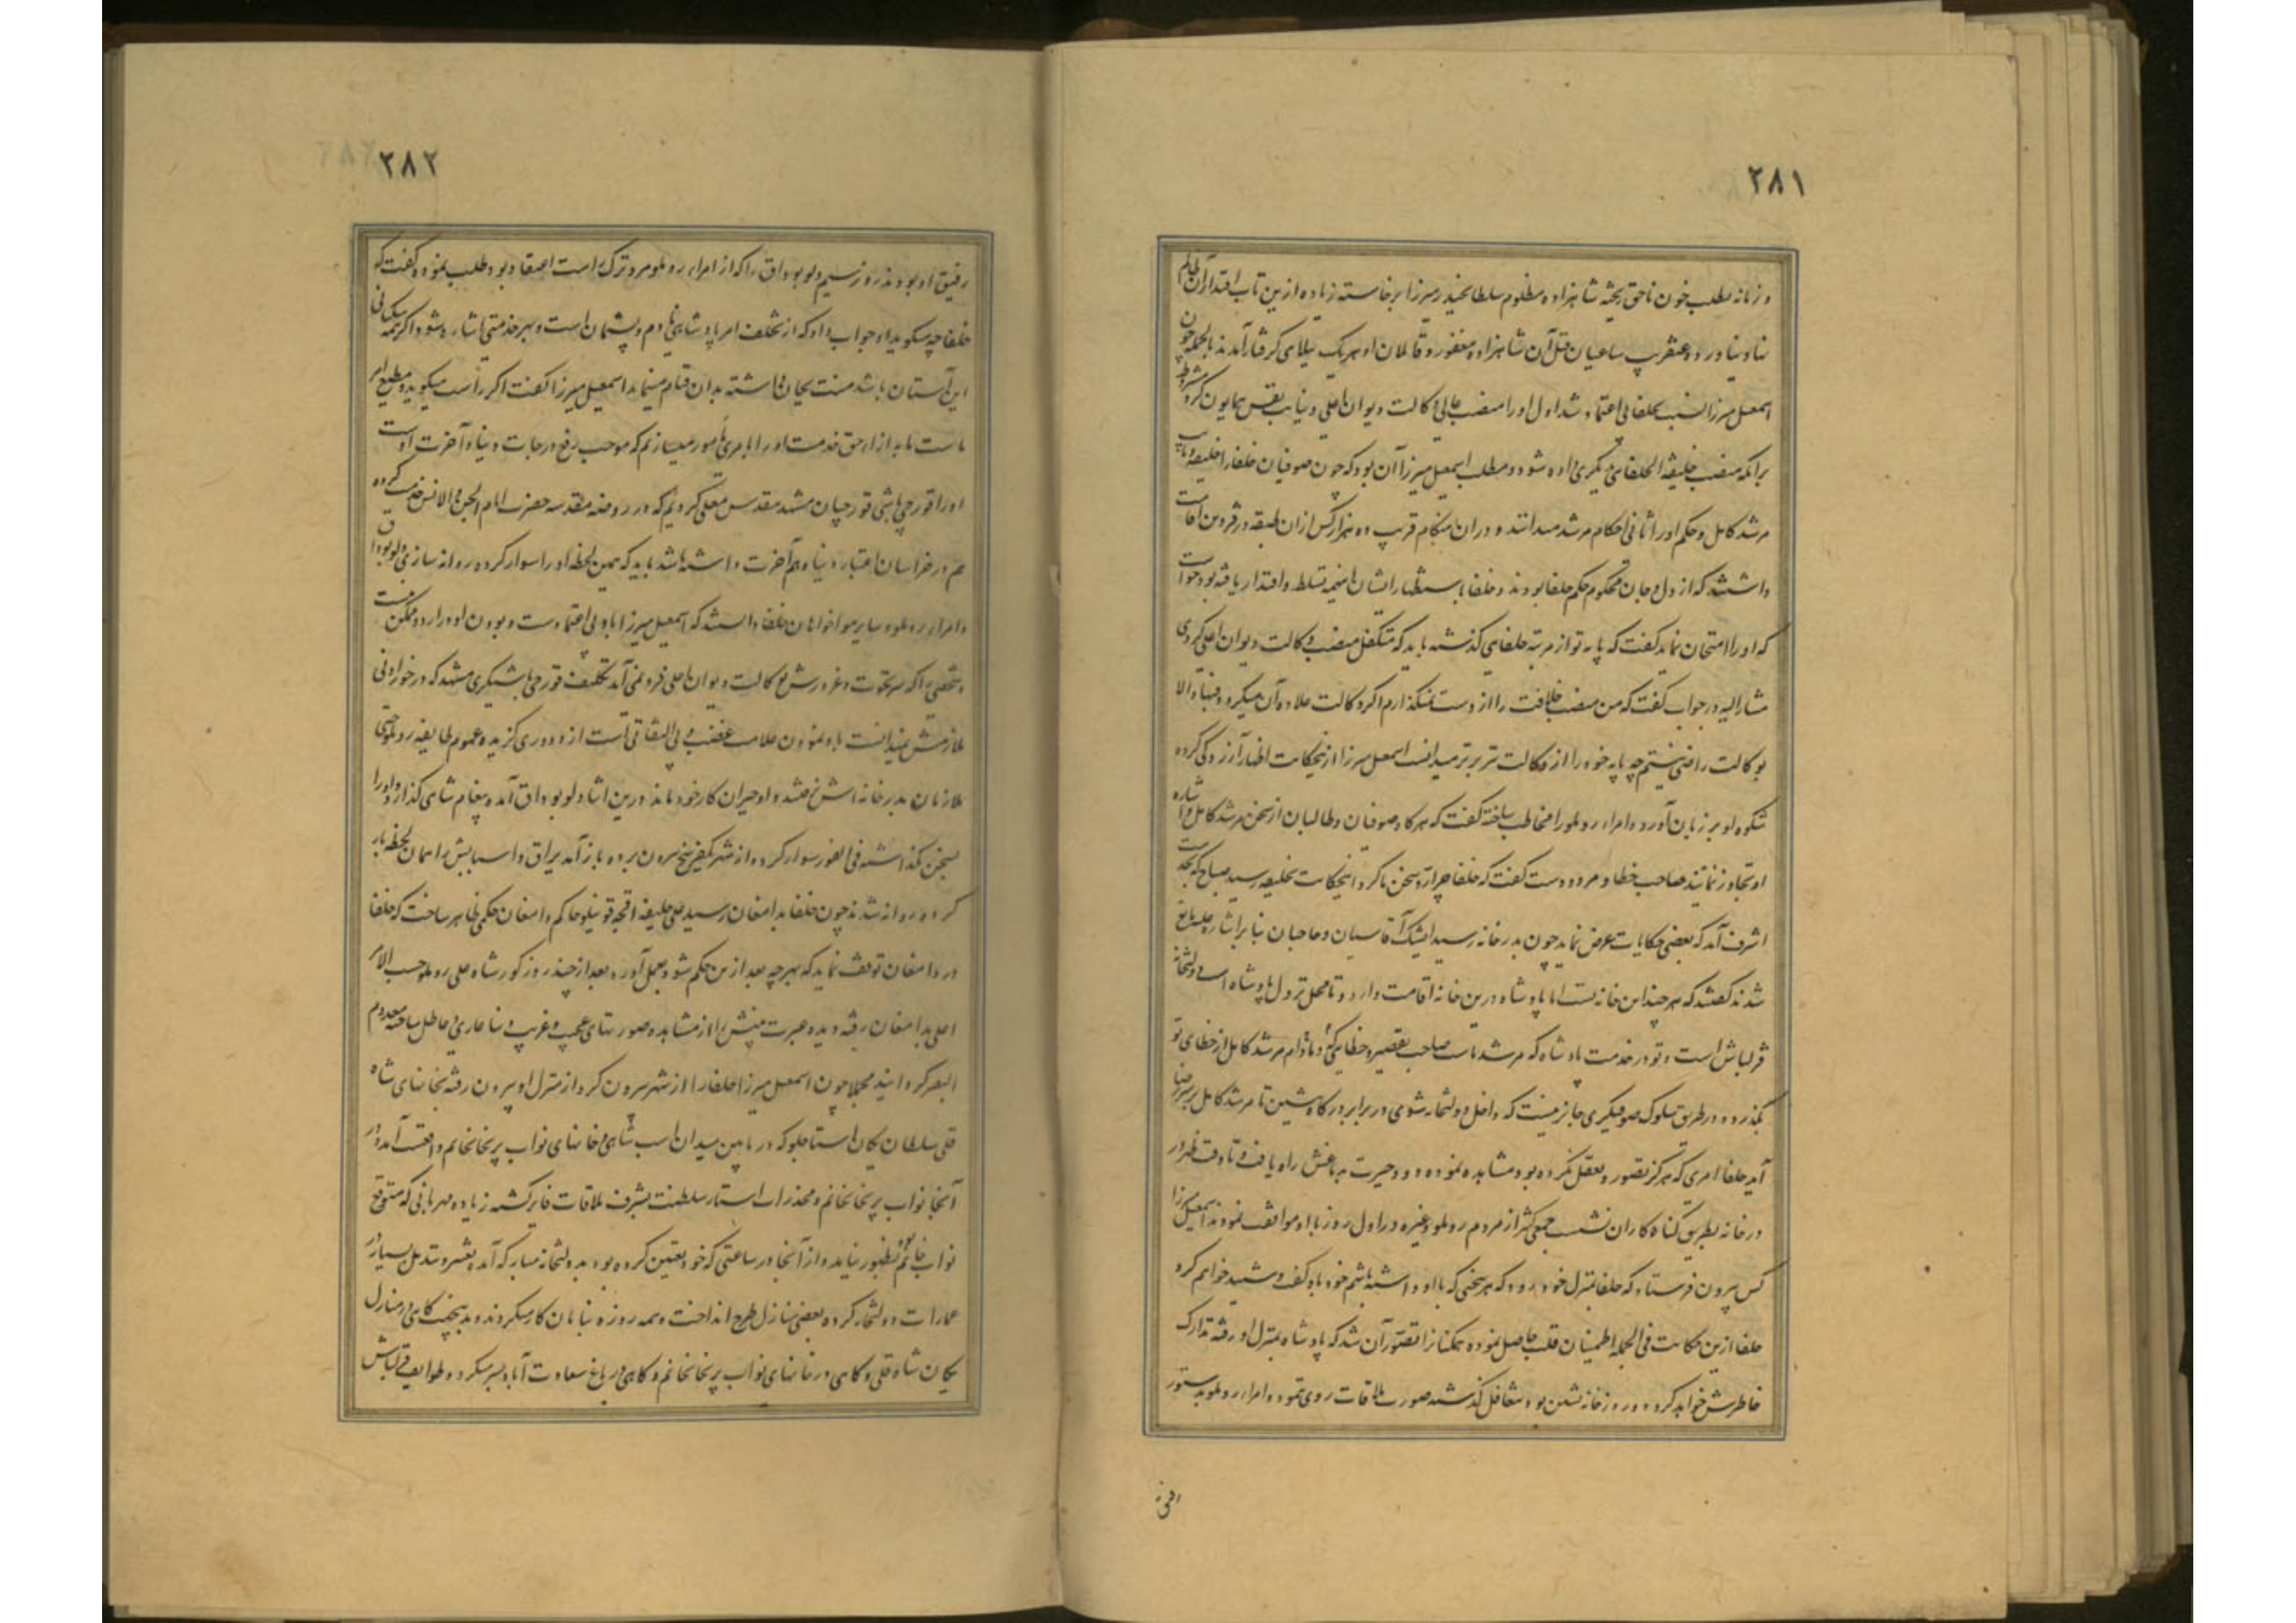 ۲۸۱
و زمانه بطلب خون ناحق ریخته شاهزاده مظلوم سلطان حیدر میرزا برخاسته زیاده ازین تاب اقتدار آن ظالم
نیاورده و عنقریب ساعیان قتل آن شاهزاده مغفور و قاتلان او هریک ببلائی گرفتار آمدند بالجمله چون
اسمعیل میرزا نسبت بخلفا بی اعتماد شد اول او را منصب عالی وکالت دیوان اعلی و نیابت نفس همایون کرد بشرط
برآنکه منصب خلیفة الخلفائی بدیگری داده شود و مطلب اسمعیل میرزا آن بود که چون صوفیان خلفا را خلیفه و نایب
مرشد کامل و حکم او را ثانی احکام مرشد میدانند و دران هنگام قریب ده هزار کس ازان طبقه در قزوین اقامت
داشتند که از دل و جان محکوم حکم خلفا بودند و خلفا باستظهار ایشان اینهمه تسلط و اقتدار یافته بود خواست
که او را امتحان نماید گفت که پایه تو از مرتبه خلفائی گذشته باید که متکفل منصب وکالت دیوان اعلی گردی
مشارالیه در جواب گفت که من منصب خلافت را از دست نمیگذارم اگر وکالت علاوه آن میگردد فبها والا
بوکالت راضی نیستم چه پایه خود را از وکالت برتر میدانست اسمعیل میرزا ازینحکایت اظهار آزردگی کرده
شکوه او بر زبان آورد و امراء روملو را مخاطب ساخته گفت که هرگاه صوفیان و طالبان از سخن مرشد کامل و اشاره
او تجاوز نمایند صاحب خطا و مردودست گفت که خلفا چرا رد سخن ما کرد اینحکایت بخلیفه رسید صباح که بخدمت
اشرف آمد که بعضی حکایات عرض نماید چون بدرخانه رسید ایشک آقاسیان و حاجبان بنابر اشاره علیه مانع
شدند گفتند که هرچند این خانه تست اما پادشاه درین خانه اقامت دارد و تا محل نزول پادشاه است دولتخانه
قزلباش است و تو در خدمت پادشاه که مرشد ماست صاحب تقصیر و خطائی و مادام مرشد کامل از خطای تو
نگذرد در طریق سلوک صوفیگری جایز نیست که داخل دولتخانه شوی در برابر درگاه بنشین تا مرشد کامل بر سر رضا
آید خلفا امری که هرگز تصور و تعقل نکرده بود مشاهده نموده دود حیرت بدماغش راه یافت و تا وقت ظهر در
درخانه بطریق گناه کاران نشست جمعی کثیر از مردم روملو و غیره در اول روز با او موافقت نمودند اسمعیل میرزا
کس بیرون فرستاد که خلفا بمنزل خود رود که هر سخنی که با او داشته باشم خود باو گفت و شنید خواهم کرد
خلفا ازین حکایت فی الجمله اطمینان قلب حاصل نموده همگنانرا تصور آن شد که پادشاه بمنزل او رفته تدارک
خاطرش خواهد کرد دو روز خانه نشین بود بتغافل گذشته صورت ملاقات روی ننمود و امراء روملو بدستور
۲۸۲
رفیق او بودند روز سیم دلو بوداق را که از امراء روملو مرد ترک راست اعتقاد بود طلب نمود و گفت که
خلفا چه میگوید او جواب داد که از تخلف امر پادشاهی نادم و پشیمان است و بهر خدمتی اشاره شود اگر همه سگبانی
این آستان باشد منت بجان داشته بدان قیام مینماید اسمعیل میرزا گفت اگر راست میگوید و مطیع امر
ماست ما به ازاء حق خدمت او را بامری مأمور میسازیم که موجب رفع درجات دنیا و آخرت اوست
او را قورچی باشی قورچیان مشهد مقدس معلی کردیم که در روضه مقدسه حضرت امام الجن و الانس خدمت کرده
هم در خراسان اعتبار دنیا و هم آخرت داشته باشد باید که همین لحظه او را سوار کرده روانه سازی دلو بوداق
و امراء روملو و سایر هواخواهان خلفا دانستند که اسمعیل میرزا باو بی اعتمادست و بودن او در اردو ممکن نیست
و شخصی را که سر نخوت و غرورش بوکالت دیوان اعلی فرو نمی آمد تکلیف قورچی باشیگری مشهد که در خور ادنی
ملازمتش نمیدانست باو نمودن علامت غضب و بی التفاتی است ازو دوری گزیده عموم طایفه روملو حتی
ملازمان بدرخانه اش نرفتند و او حیران کار خود ماند درین اثنا دلو بوداق آمد و پیغام شاهی گذارد و او را
بسخن نگذاشته فی الفور سوار کرده از شهر یکفرسخ بیرون برده باز آمد یراق و اسبابش را همان لحظه بار
کرده روانه شدند چون خلفا بدامغان رسید علی خلیفه اقچه قوینلو حاکم دامغان حکمی ظاهر ساخت که خلفا
در دامغان توقف نماید که بهرچه بعد ازین حکم شود بعمل آورد بعد از چند روز کور شاه علی روملو حسب الامر
اعلی بدامغان رفته دیده عبرت بینش را از مشاهده صورتهای عجیب و غریب دنیا عاری و عاطل ساخته معدوم
البصر گردانید مجملا چون اسمعیل میرزا خلفا را از شهر بیرون کرد از منزل او بیرون رفته بخانهای شاه
قلی سلطان یکان استاجلو که در مابین میدان اسب شاهی و خانهای نواب پریخان خانم واقعست آمد و در
آنجا نواب پریخان خانم و مخدرات استار سلطنت بشرف ملاقات فایز گشته زیاده مهربانی که متوقع
نواب خانم بود بظهور نیامد و از آنجا در ساعتی که خود تعیین کرده بود بدولتخانه مبارکه آمد و تغییر و تبدیل بسیار در
عمارات دولتخانه کرده بعضی منازل طرح انداخت و همه روزه بنایان کار میکردند و بدینجهت گاهی در منازل
یکان شاه قلی و گاهی در خانهای نواب پریخان خانم و گاهی در باغ سعادت آباد بسر میکرد و طوایف قزلباش